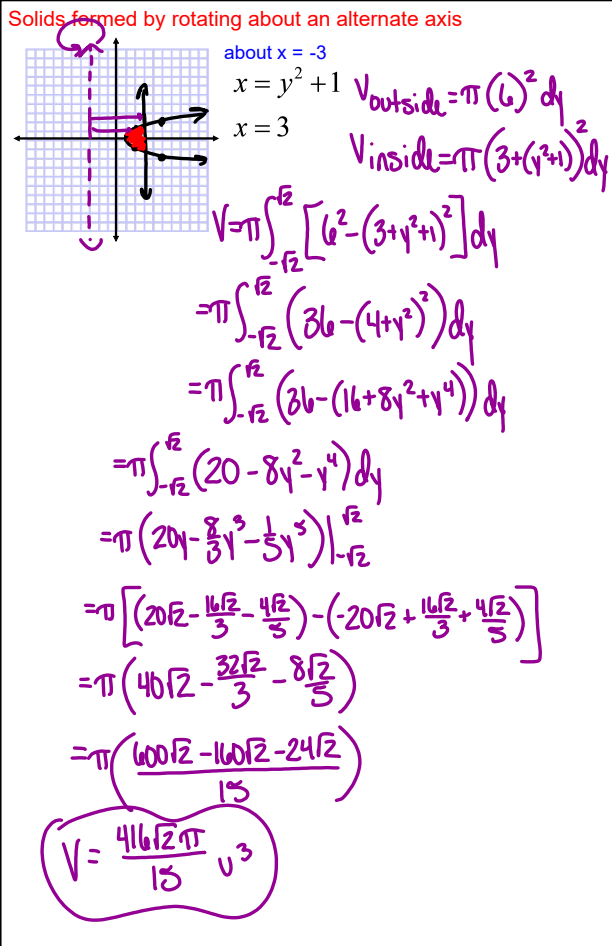 Solids formed by rotating about an alternate axis
about x = -3
x = y² + 1
x = 3
V outside = π(6)² dy
V inside = π(3+(y²+1))² dy
V = π∫_{-√2}^{√2} [6² - (3+y²+1)²] dy
= π∫_{-√2}^{√2} (36 - (4+y²)²) dy
= π∫_{-√2}^{√2} (36 - (16+8y²+y⁴)) dy
= π∫_{-√2}^{√2} (20 - 8y² - y⁴) dy
= π(20y - 8/3 y³ - 1/5 y⁵)|_{-√2}^{√2}
= π[(20√2 - 16√2/3 - 4√2/5) - (-20√2 + 16√2/3 + 4√2/5)]
= π(40√2 - 32√2/3 - 8√2/5)
= π((600√2 - 160√2 - 24√2)/15)
V = 416√2π/15 u³